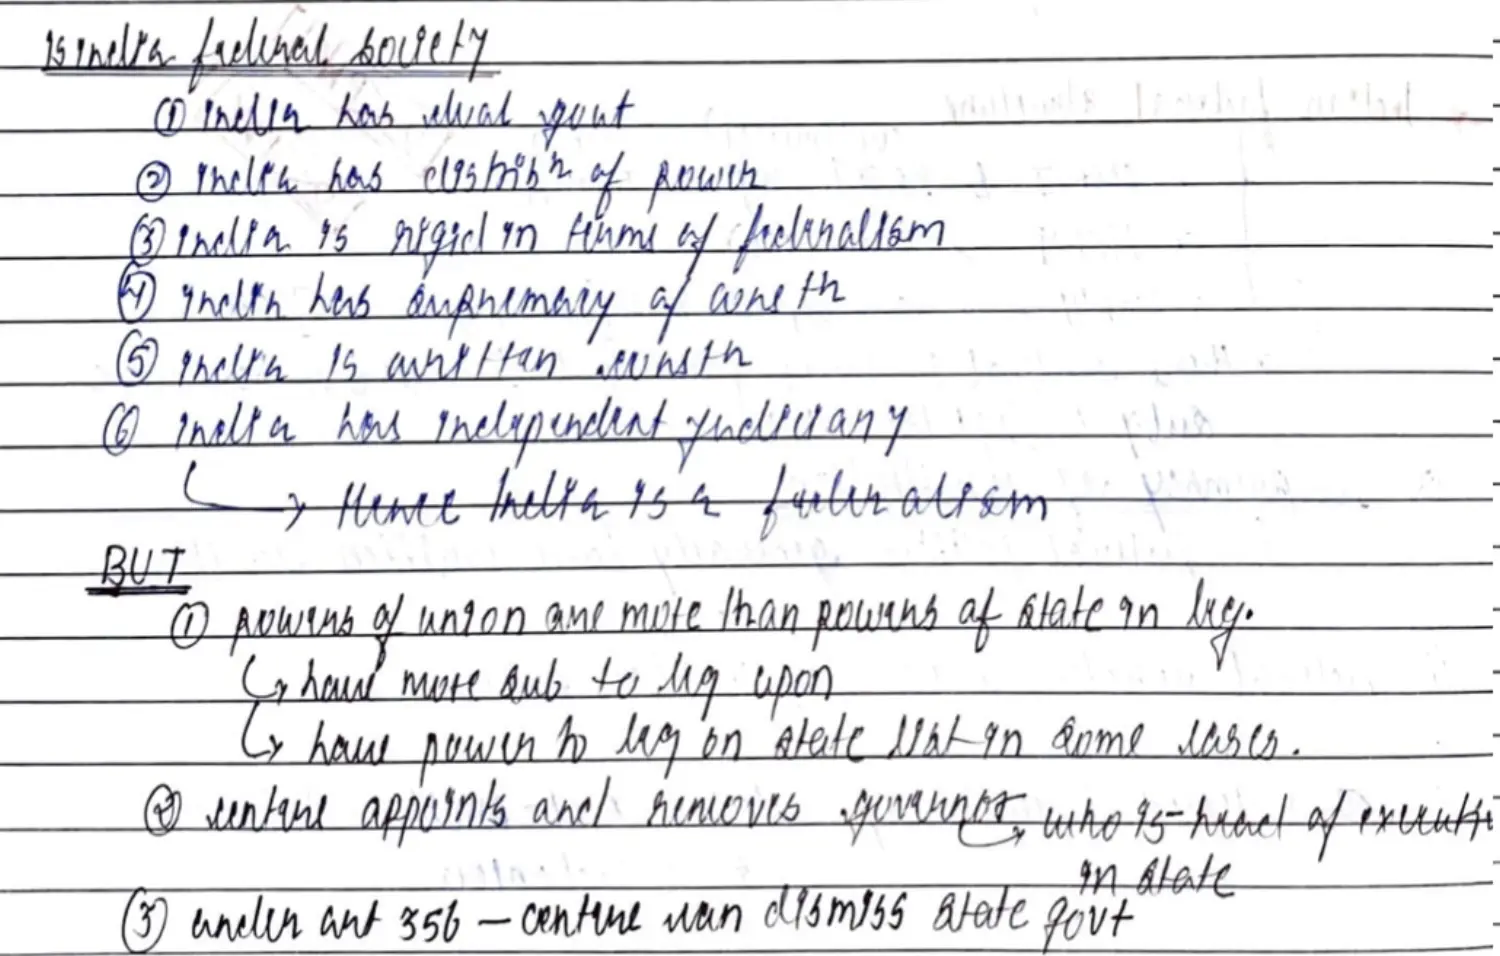 Is India federal society
① India has dual govt
② India has distribn of power
③ India is rigid in terms of federalism
④ India has supremacy of constn
⑤ India is written constn
⑥ India has independent judiciary
↳ Hence India is a federalism
BUT
① powers of union are more than powers of state in leg.
↳ have more sub to leg upon
↳ have power to leg on state list in some cases.
② centre appoints and removes governor ↳ who is head of executi
in state
③ under art 356 — centre can dismiss state govt